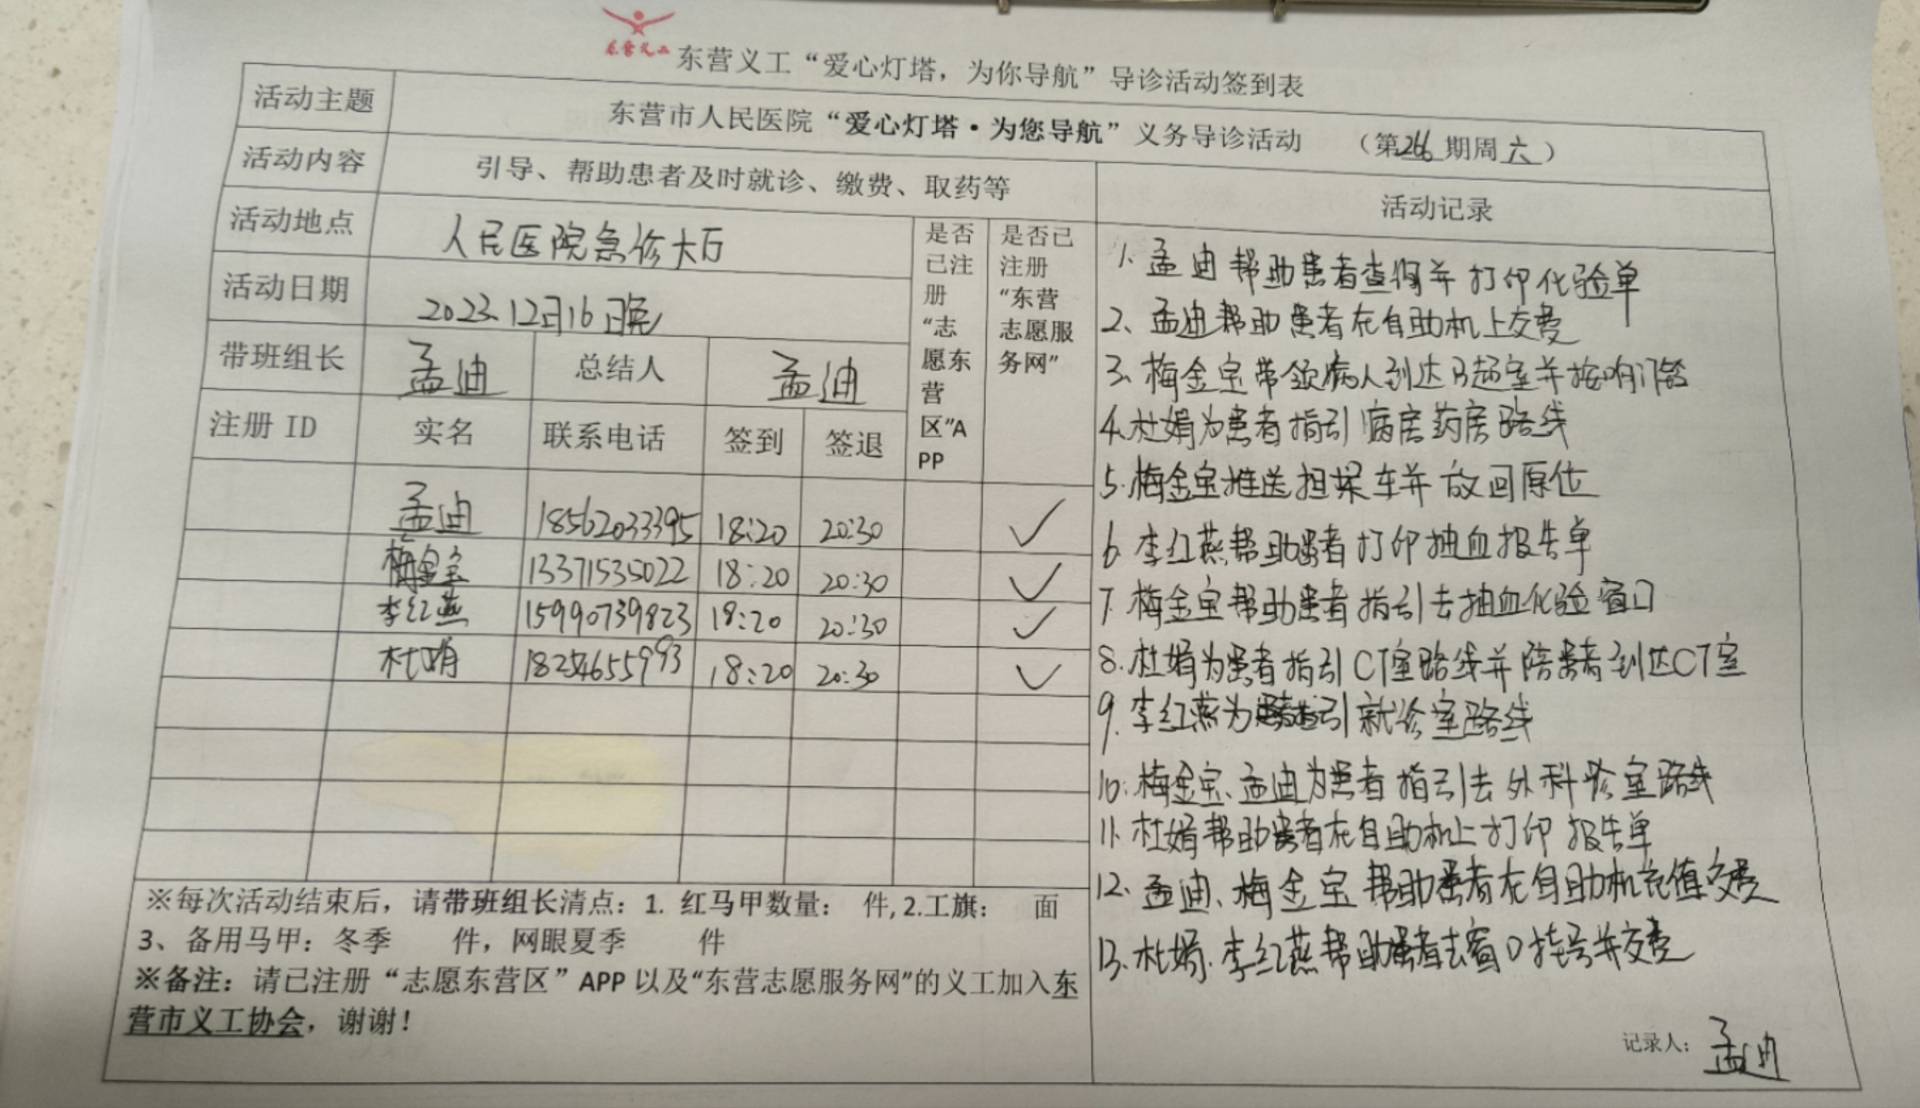 东营义工
东营义工“爱心灯塔，为你导航”导诊活动签到表
活动主题 东营市人民医院“爱心灯塔·为您导航”义务导诊活动 （第266期周六）
活动内容 引导、帮助患者及时就诊、缴费、取药等
活动地点 人民医院急诊大厅
活动日期 2023.12月16日晚
带班组长 孟迪 总结人 孟迪
是否
已注
册
“志
愿东
营
区”A
PP
是否已
注册
“东营
志愿服
务网”
注册 ID 实名 联系电话 签到 签退
孟迪 18562033395 18:20 20:30 ✓
梅金宝 13371535022 18:20 20:30 ✓
李红燕 15990739823 18:20 20:30 ✓
杜娟 18254655993 18:20 20:30 ✓
※每次活动结束后，请带班组长清点：1. 红马甲数量： 件, 2.工旗： 面
3、备用马甲：冬季 件，网眼夏季 件
※备注：请已注册“志愿东营区”APP 以及“东营志愿服务网”的义工加入东
营市义工协会，谢谢！
活动记录
1. 孟迪帮助患者查询并打印化验单
2、孟迪帮助患者在自助机上交费
3、梅金宝带领病人到达B超室并按响门铃
4.杜娟为患者指引病房药房路线
5.梅金宝推送担架车并放回原位
6、李红燕帮助患者打印抽血报告单
7、梅金宝帮助患者指引去抽血化验窗口
8.杜娟为患者指引CT室路线并陪患者到达CT室
9、李红燕为患者指引就诊室路线
10.梅金宝、孟迪为患者指引去外科诊室路线
11.杜娟帮助患者在自助机上打印报告单
12、孟迪、梅金宝帮助患者在自助机充值交费
13.杜娟.李红燕帮助患者去窗口挂号并交费
记录人：孟迪